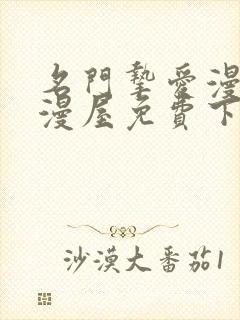 名門摯愛漫
漫屋免費下
沙漠大番茄1